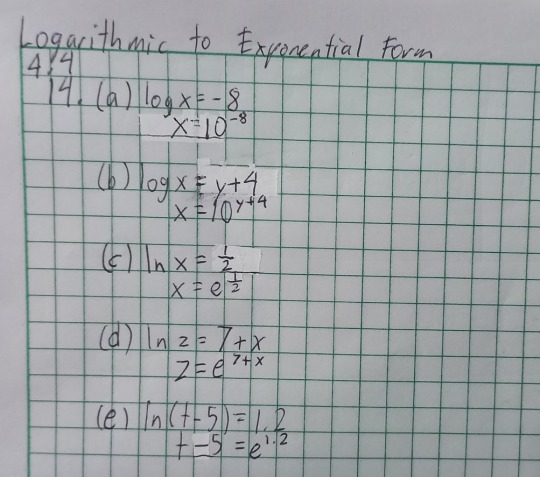 Logarithmic to Exponential Form
4.4
14. (a) log x = -8
x = 10^-8
(b) log x = y+4
x = 10^y+4
(c) ln x = 1/2
x = e^1/2
(d) ln z = 7+x
z = e^7+x
(e) ln(t-5) = 1.2
t-5 = e^1.2